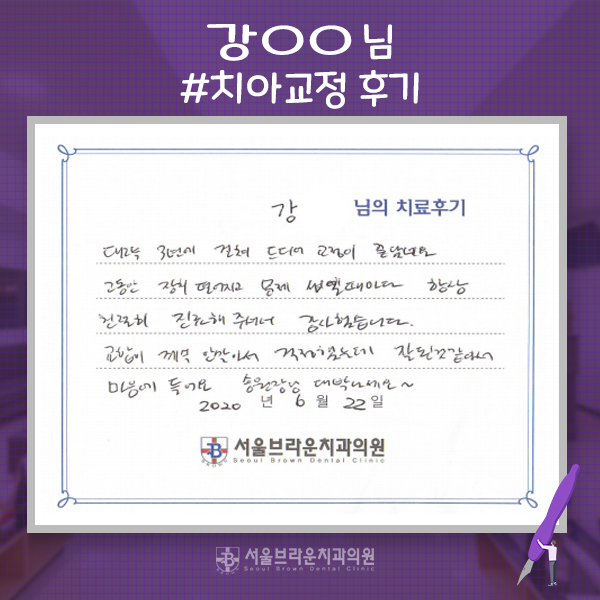 강OO님
#치아교정 후기
강 님의 치료후기
대략 3년에 걸쳐 드디어 교정이 끝났네요
그동안 장치 떨어지고 문제 생길때마다 항상
친절히 진료해 주셔서 감사했습니다.
교합이 계속 안맞아서 걱정했는데 잘된것같아서
마음에 들어요 송원장님 대박나세요~
2020 년 6 월 22 일
B 서울브라운치과의원
Seoul Brown Dental Clinic
B 서울브라운치과의원
Seoul Brown Dental Clinic